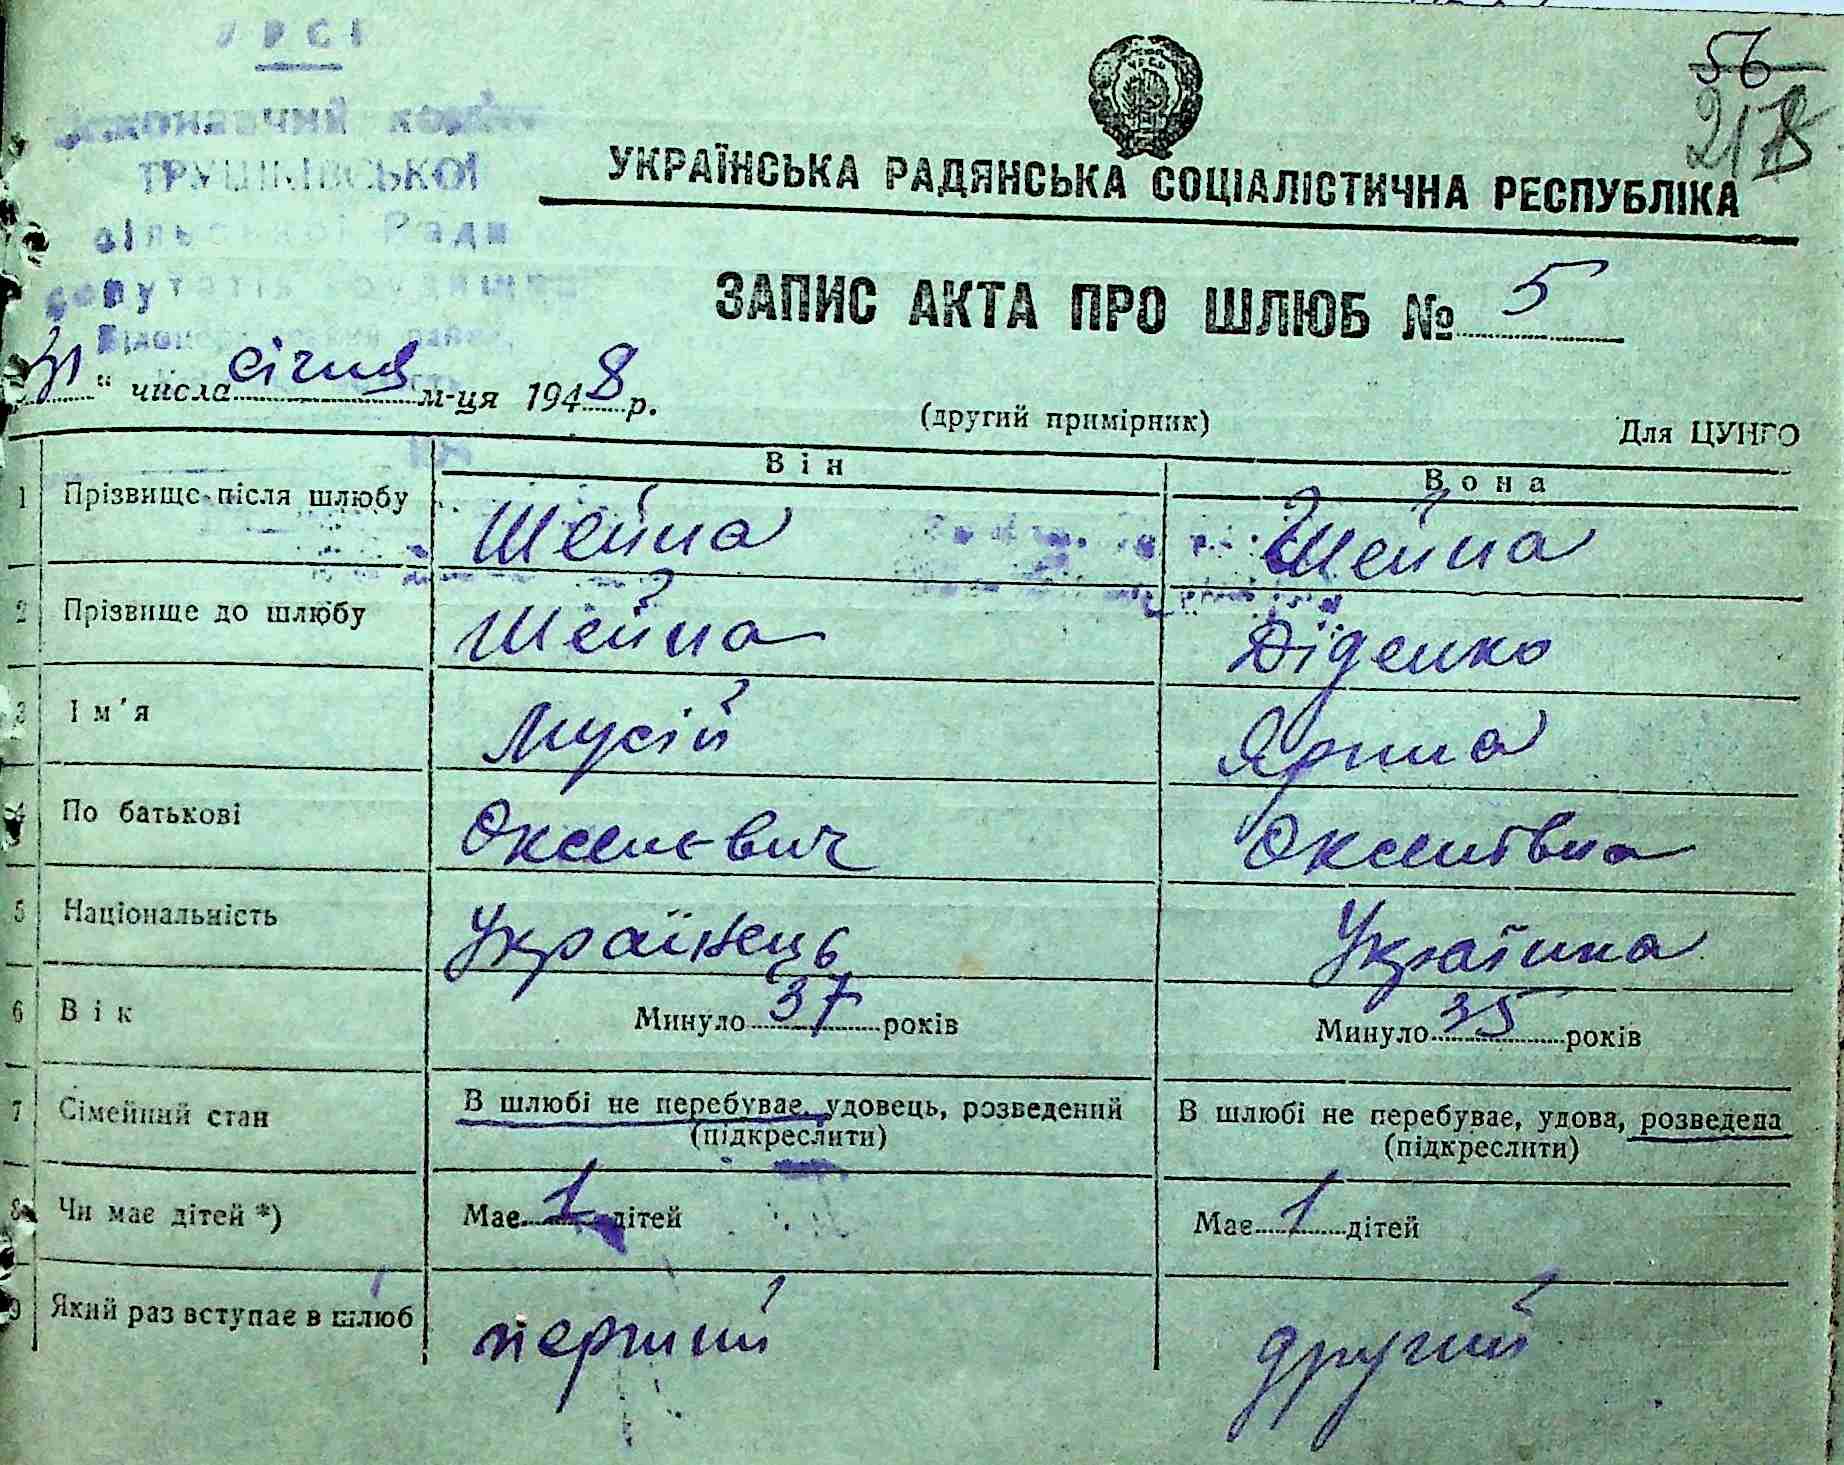 УРСР
Виконавчий комітет
ТРУШКІВСЬКОЇ
сільської Ради
депутатів трудящих
56
218
УКРАЇНСЬКА РАДЯНСЬКА СОЦІАЛІСТИЧНА РЕСПУБЛІКА
ЗАПИС АКТА ПРО ШЛЮБ № 5
31 " числа січня м-ця 1948 р.
(другий примірник)
Для ЦУНГО
Він Вона
1 Прізвище після шлюбу Шейна Шейна
2 Прізвище до шлюбу Шейна Діденко
3 Ім'я Мусій Ярина
4 По батькові Оксенєвич Оксентівна
5 Національність Українець Українка
6 Вік Минуло 37 років Минуло 35 років
7 Сімейний стан В шлюбі не перебуває, удовець, розведений В шлюбі не перебуває, удова, розведена
(підкреслити) (підкреслити)
8 Чи має дітей *) Має 1 дітей Має 1 дітей
9 Який раз вступає в шлюб перший другий